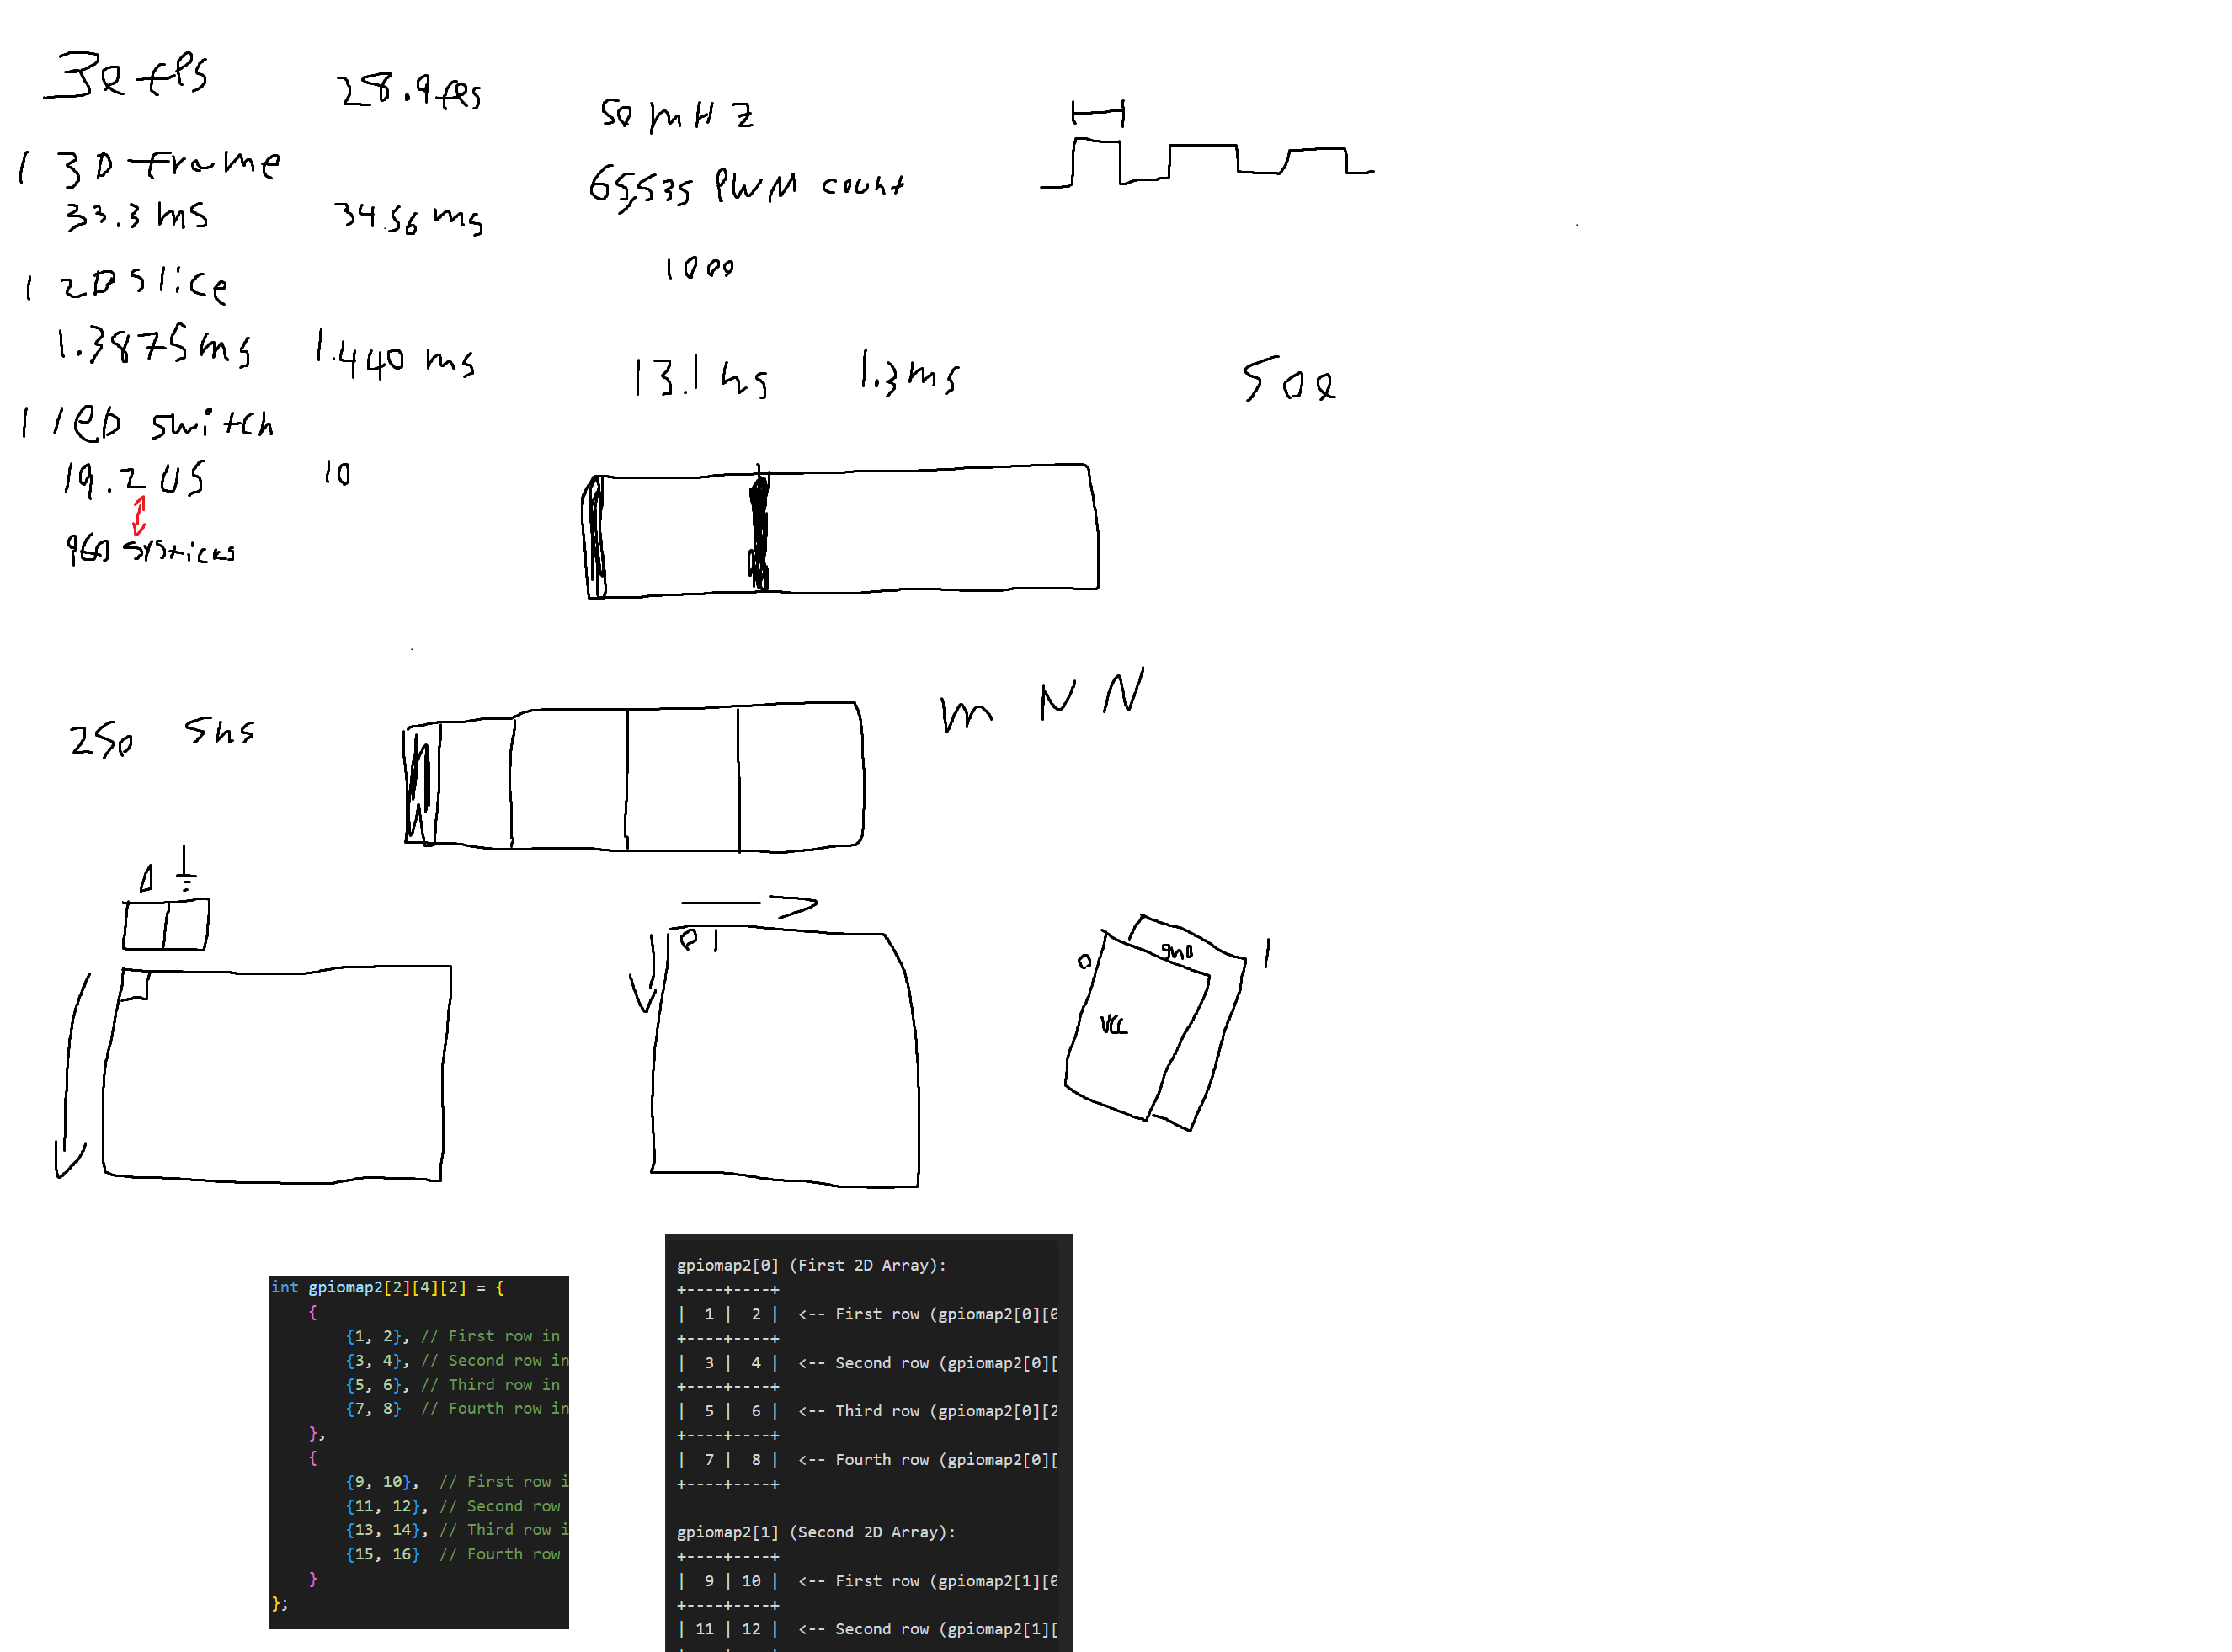 30 fps
28.9 fps
1 3D frame
33.3 ms
34.56 ms
1 2D slice
1.3875 ms
1.440 ms
1 led switch
19.2 us
10
960 systicks
50 mHz
65,535 PWM count
1000
13.1 ns
1.3 ms
500
250
5ns
m N N
0 1
0
gnd
1
VCC
int gpiomap2[2][4][2] = {
{
{1, 2}, // First row in
{3, 4}, // Second row in
{5, 6}, // Third row in
{7, 8} // Fourth row in
},
{
{9, 10}, // First row i
{11, 12}, // Second row
{13, 14}, // Third row i
{15, 16} // Fourth row
}
};
gpiomap2[0] (First 2D Array):
+----+----+
| 1 | 2 | <-- First row (gpiomap2[0][0
+----+----+
| 3 | 4 | <-- Second row (gpiomap2[0][
+----+----+
| 5 | 6 | <-- Third row (gpiomap2[0][2
+----+----+
| 7 | 8 | <-- Fourth row (gpiomap2[0][
+----+----+
gpiomap2[1] (Second 2D Array):
+----+----+
| 9 | 10 | <-- First row (gpiomap2[1][0
+----+----+
| 11 | 12 | <-- Second row (gpiomap2[1][